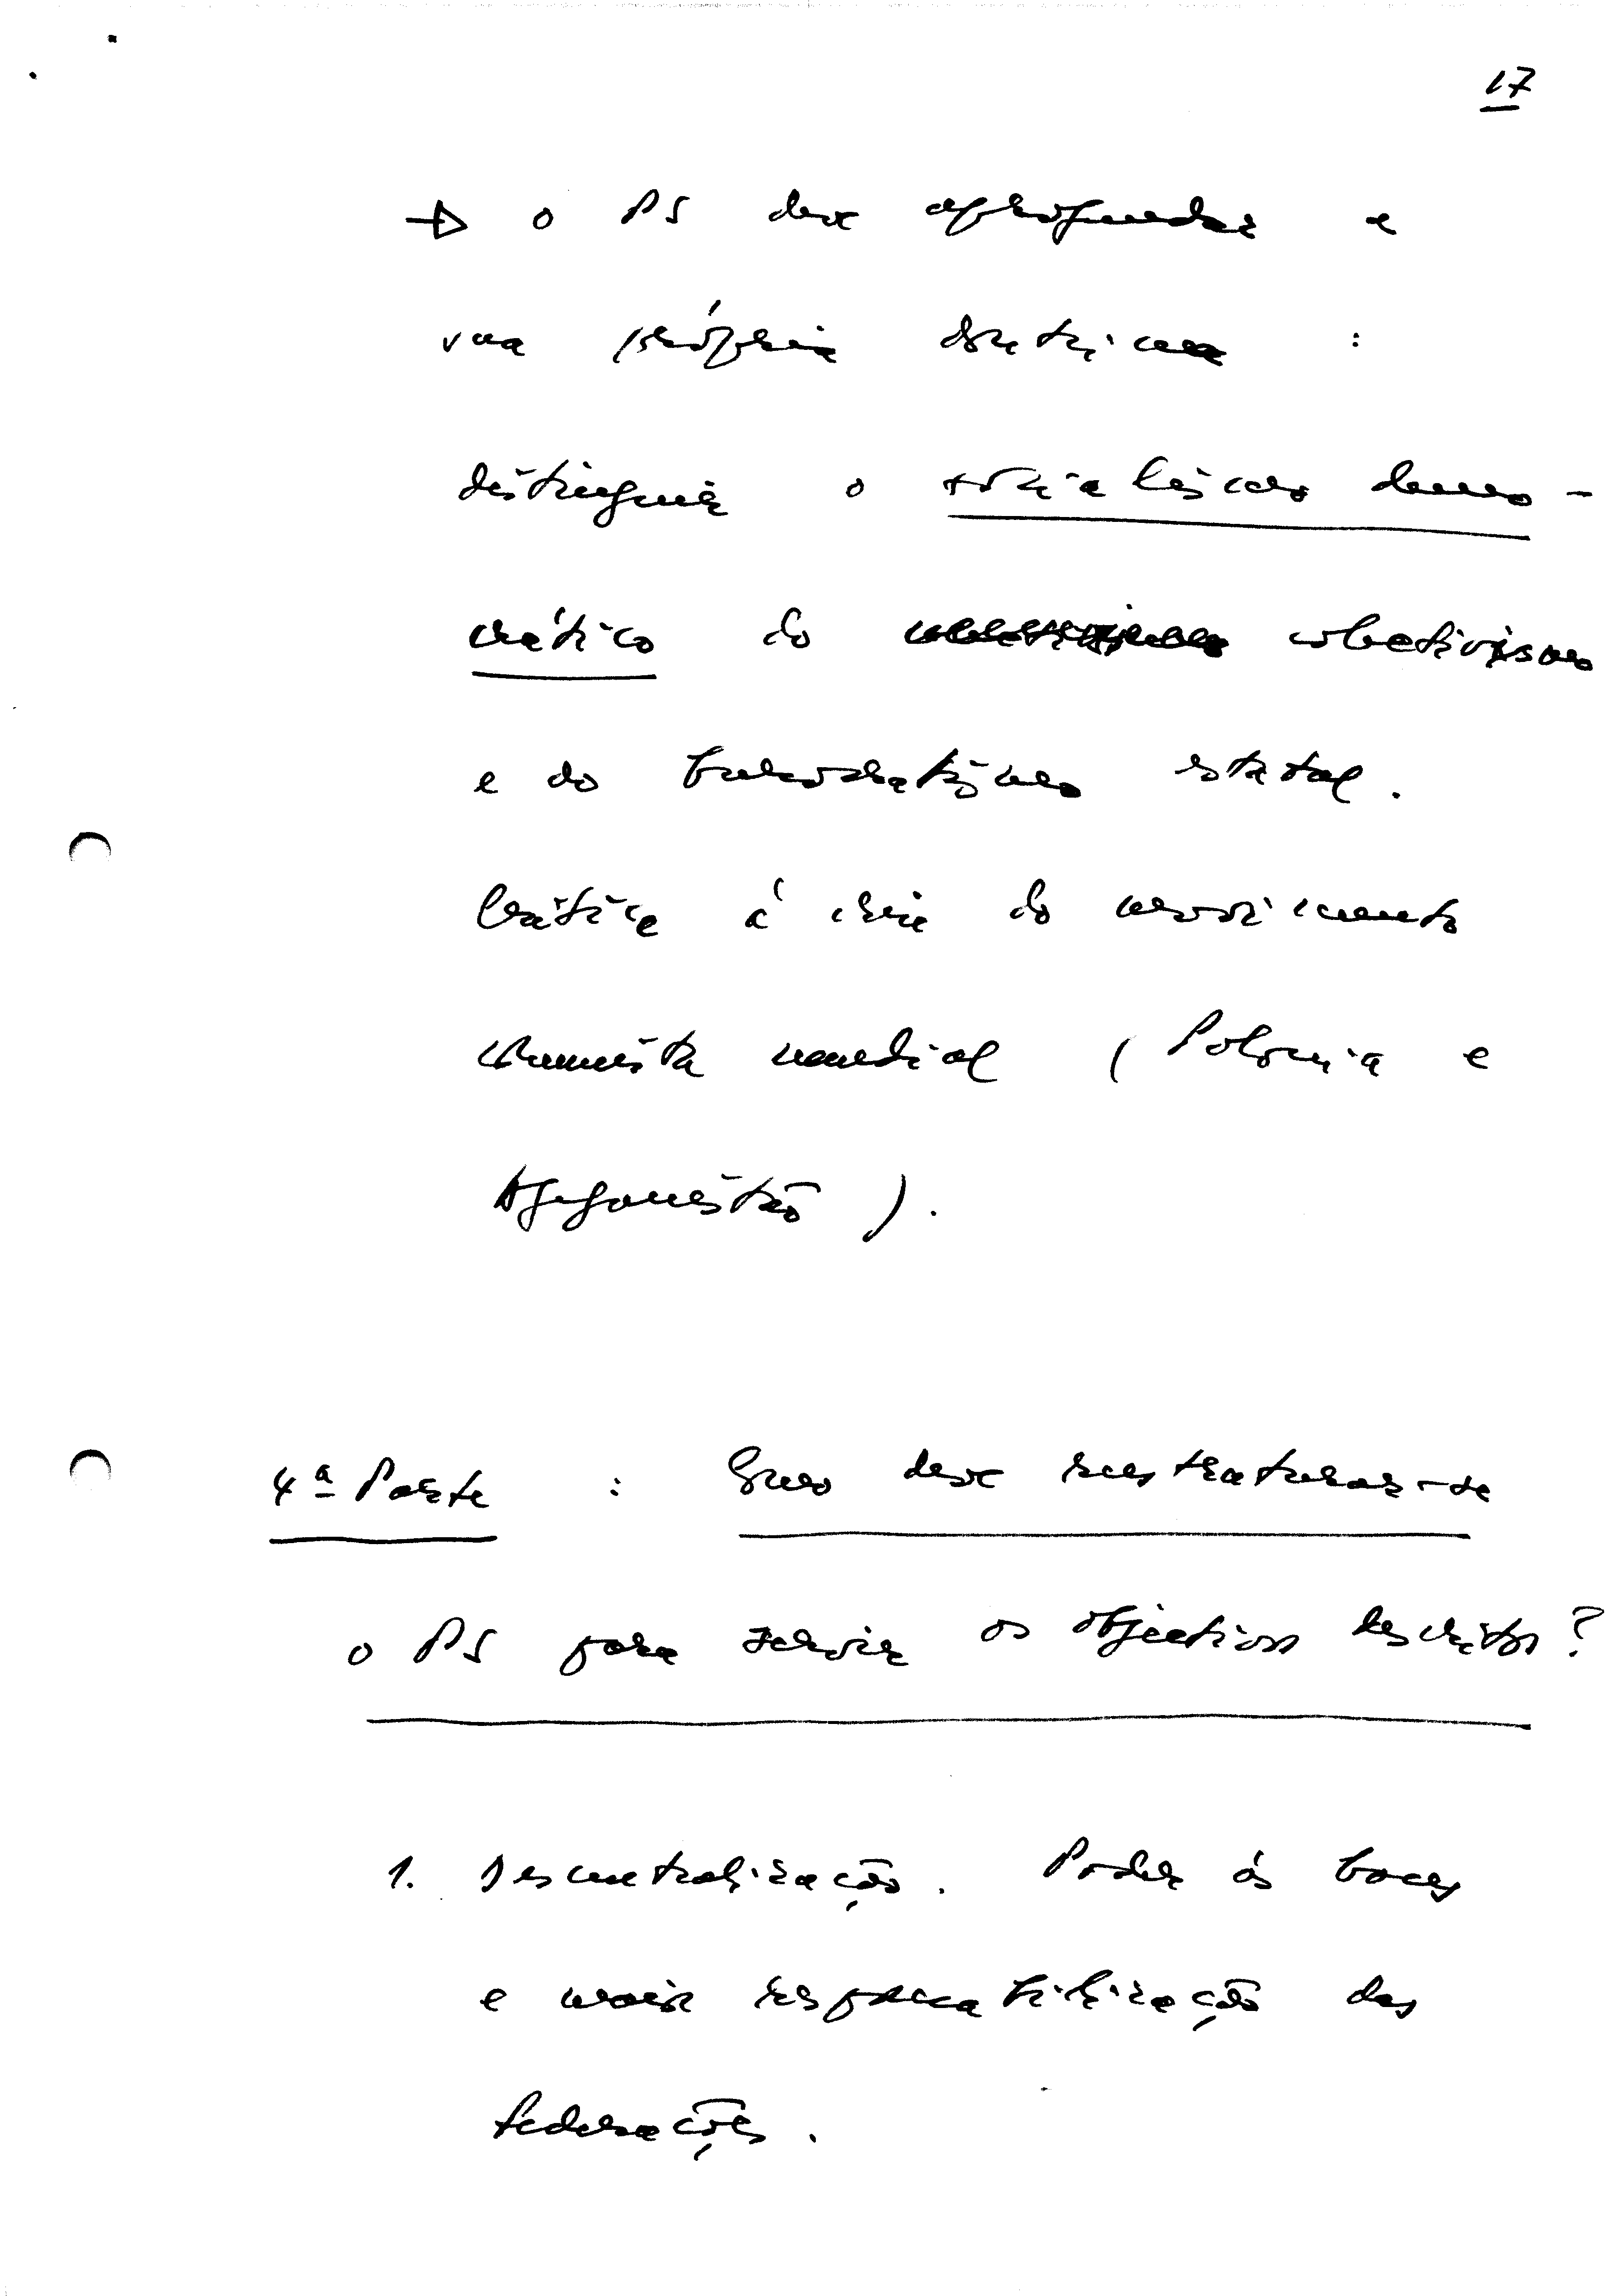 17
→ o PS deve aprofundar a
sua própria doutrina :
distinguir o socialismo demo-
crático do colectivismo
e do burocratismo estatal.
Crítica à crise do movimento
comunista mundial ( Polonia e
Afeganistão ).
4ª Parte : Como deve reestruturar-se
o PS para servir os objectivos descritos?
1. Descentralização. Poder às bases
e maior responsabilização das
federações.